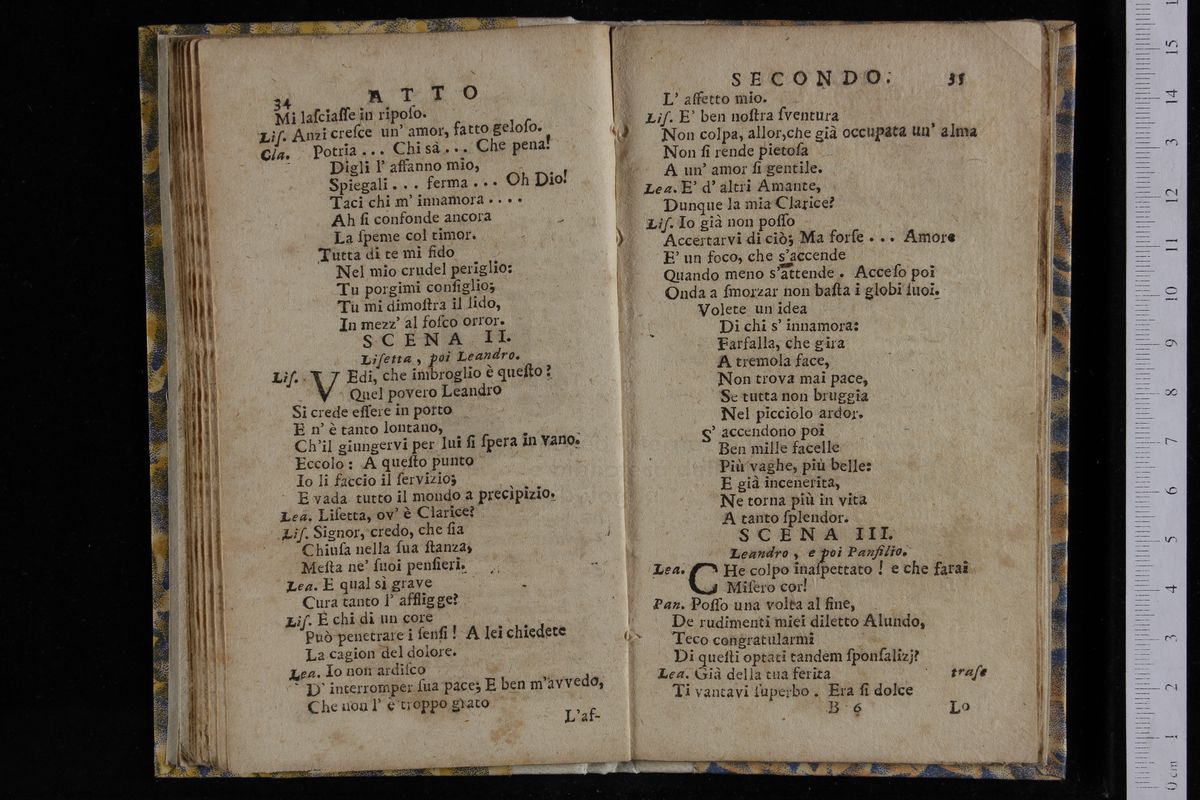 34 ATTO
Mi laſciaſſe in ripoſo.
Liſ. Anzi creſce un' amor, fatto geloſo.
Cla. Potria ... Chi sà ... Che pena!
Digli l' affanno mio,
Spiegali ... ferma ... Oh Dio!
Taci chi m' innamora ....
Ah ſi confonde ancora
La ſpeme col timor.
Tutta di te mi fido
Nel mio crudel periglio:
Tu porgimi conſiglio;
Tu mi dimoſtra il lido,
In mezz' al foſco orror.
SCENA II.
Liſetta, poi Leandro.
Liſ. VEdi, che imbroglio è queſto?
Quel povero Leandro
Si crede eſſere in porto
E n' è tanto lontano,
Ch'il giungervi per lui ſi ſpera in vano.
Eccolo: A queſto punto
Io li faccio il ſervizio;
E vada tutto il mondo a precipizio.
Lea. Liſetta, ov' è Clarice?
Liſ. Signor, credo, che ſia
Chiuſa nella ſua ſtanza,
Meſta ne' ſuoi penſieri.
Lea. E qual sì grave
Cura tanto l' affligge?
Liſ. E chi di un core
Può penetrare i ſenſi! A lei chiedete
La cagion del dolore.
Lea. Io non ardiſco
D' interromper ſua pace; E ben m'avvedo,
Che non l' è troppo grato
L'af-
SECONDO. 35
L' affetto mio.
Liſ. E' ben noſtra ſventura
Non colpa, allor,che già occupata un' alma
Non ſi rende pietoſa
A un' amor ſi gentile.
Lea. E' d' altri Amante,
Dunque la mia Clarice?
Liſ. Io già non poſſo
Accertarvi di ciò; Ma forſe ... Amore
E' un foco, che s'accende
Quando meno s'attende. Acceſo poi
Onda a ſmorzar non baſta i globi ſuoi.
Volete un idea
Di chi s' innamora:
Farfalla, che gira
A tremola face,
Non trova mai pace,
Se tutta non bruggia
Nel picciolo ardor.
S' accendono poi
Ben mille facelle
Più vaghe, più belle:
E già incenerita,
Ne torna più in vita
A tanto ſplendor.
SCENA III.
Leandro, e poi Panfilio.
Lea. CHe colpo inaſpettato! e che farai
Miſero cor!
Pan. Poſſo una volta al fine,
De rudimenti miei diletto Alundo,
Teco congratularmi
Di queſti optati tandem ſponſalizj?
Lea. Già della tua ferita traſe
Ti vantavi ſuperbo. Era ſi dolce
B 6 Lo